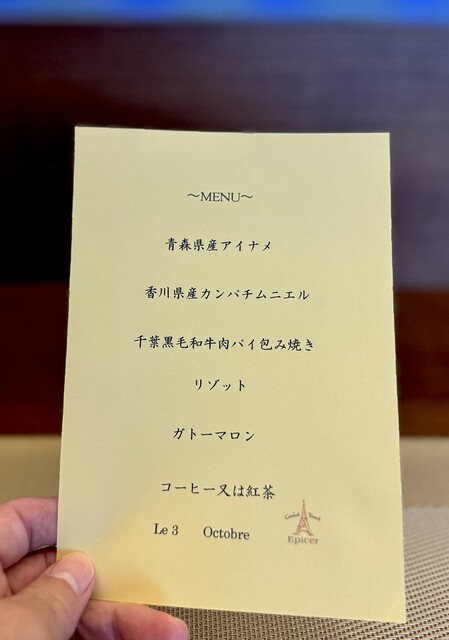 ～MENU～
青森県産アイナメ
香川県産カンパチムニエル
千葉黒毛和牛肉パイ包み焼き
リゾット
ガトーマロン
コーヒー又は紅茶
Le 3 Octobre
Epicer